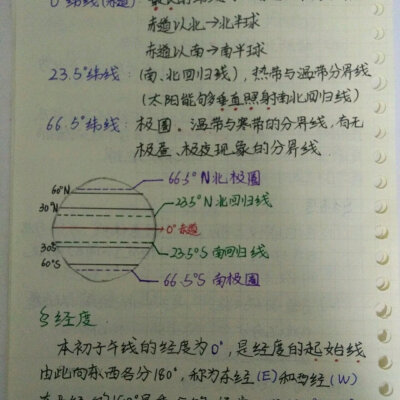 0°纬线(赤道):
赤道以北→北半球
赤道以南→南半球
23.5°纬线:(南、北回归线),热带与温带分界线
(太阳能够垂直照射南北回归线)
66.5°纬线:极圈。温带与寒带的分界线,有无
极昼、极夜现象的分界线.
66.5°N北极圈
60°N
23.5°N北回归线
30°N
0°赤道
30S
23.5°S南回归线
60°S
66.5°S 南极圈
经度.
本初子午线的经度为0°,是经度的起始线
由此向东西各分180°,称为东经(E)和西经(W)